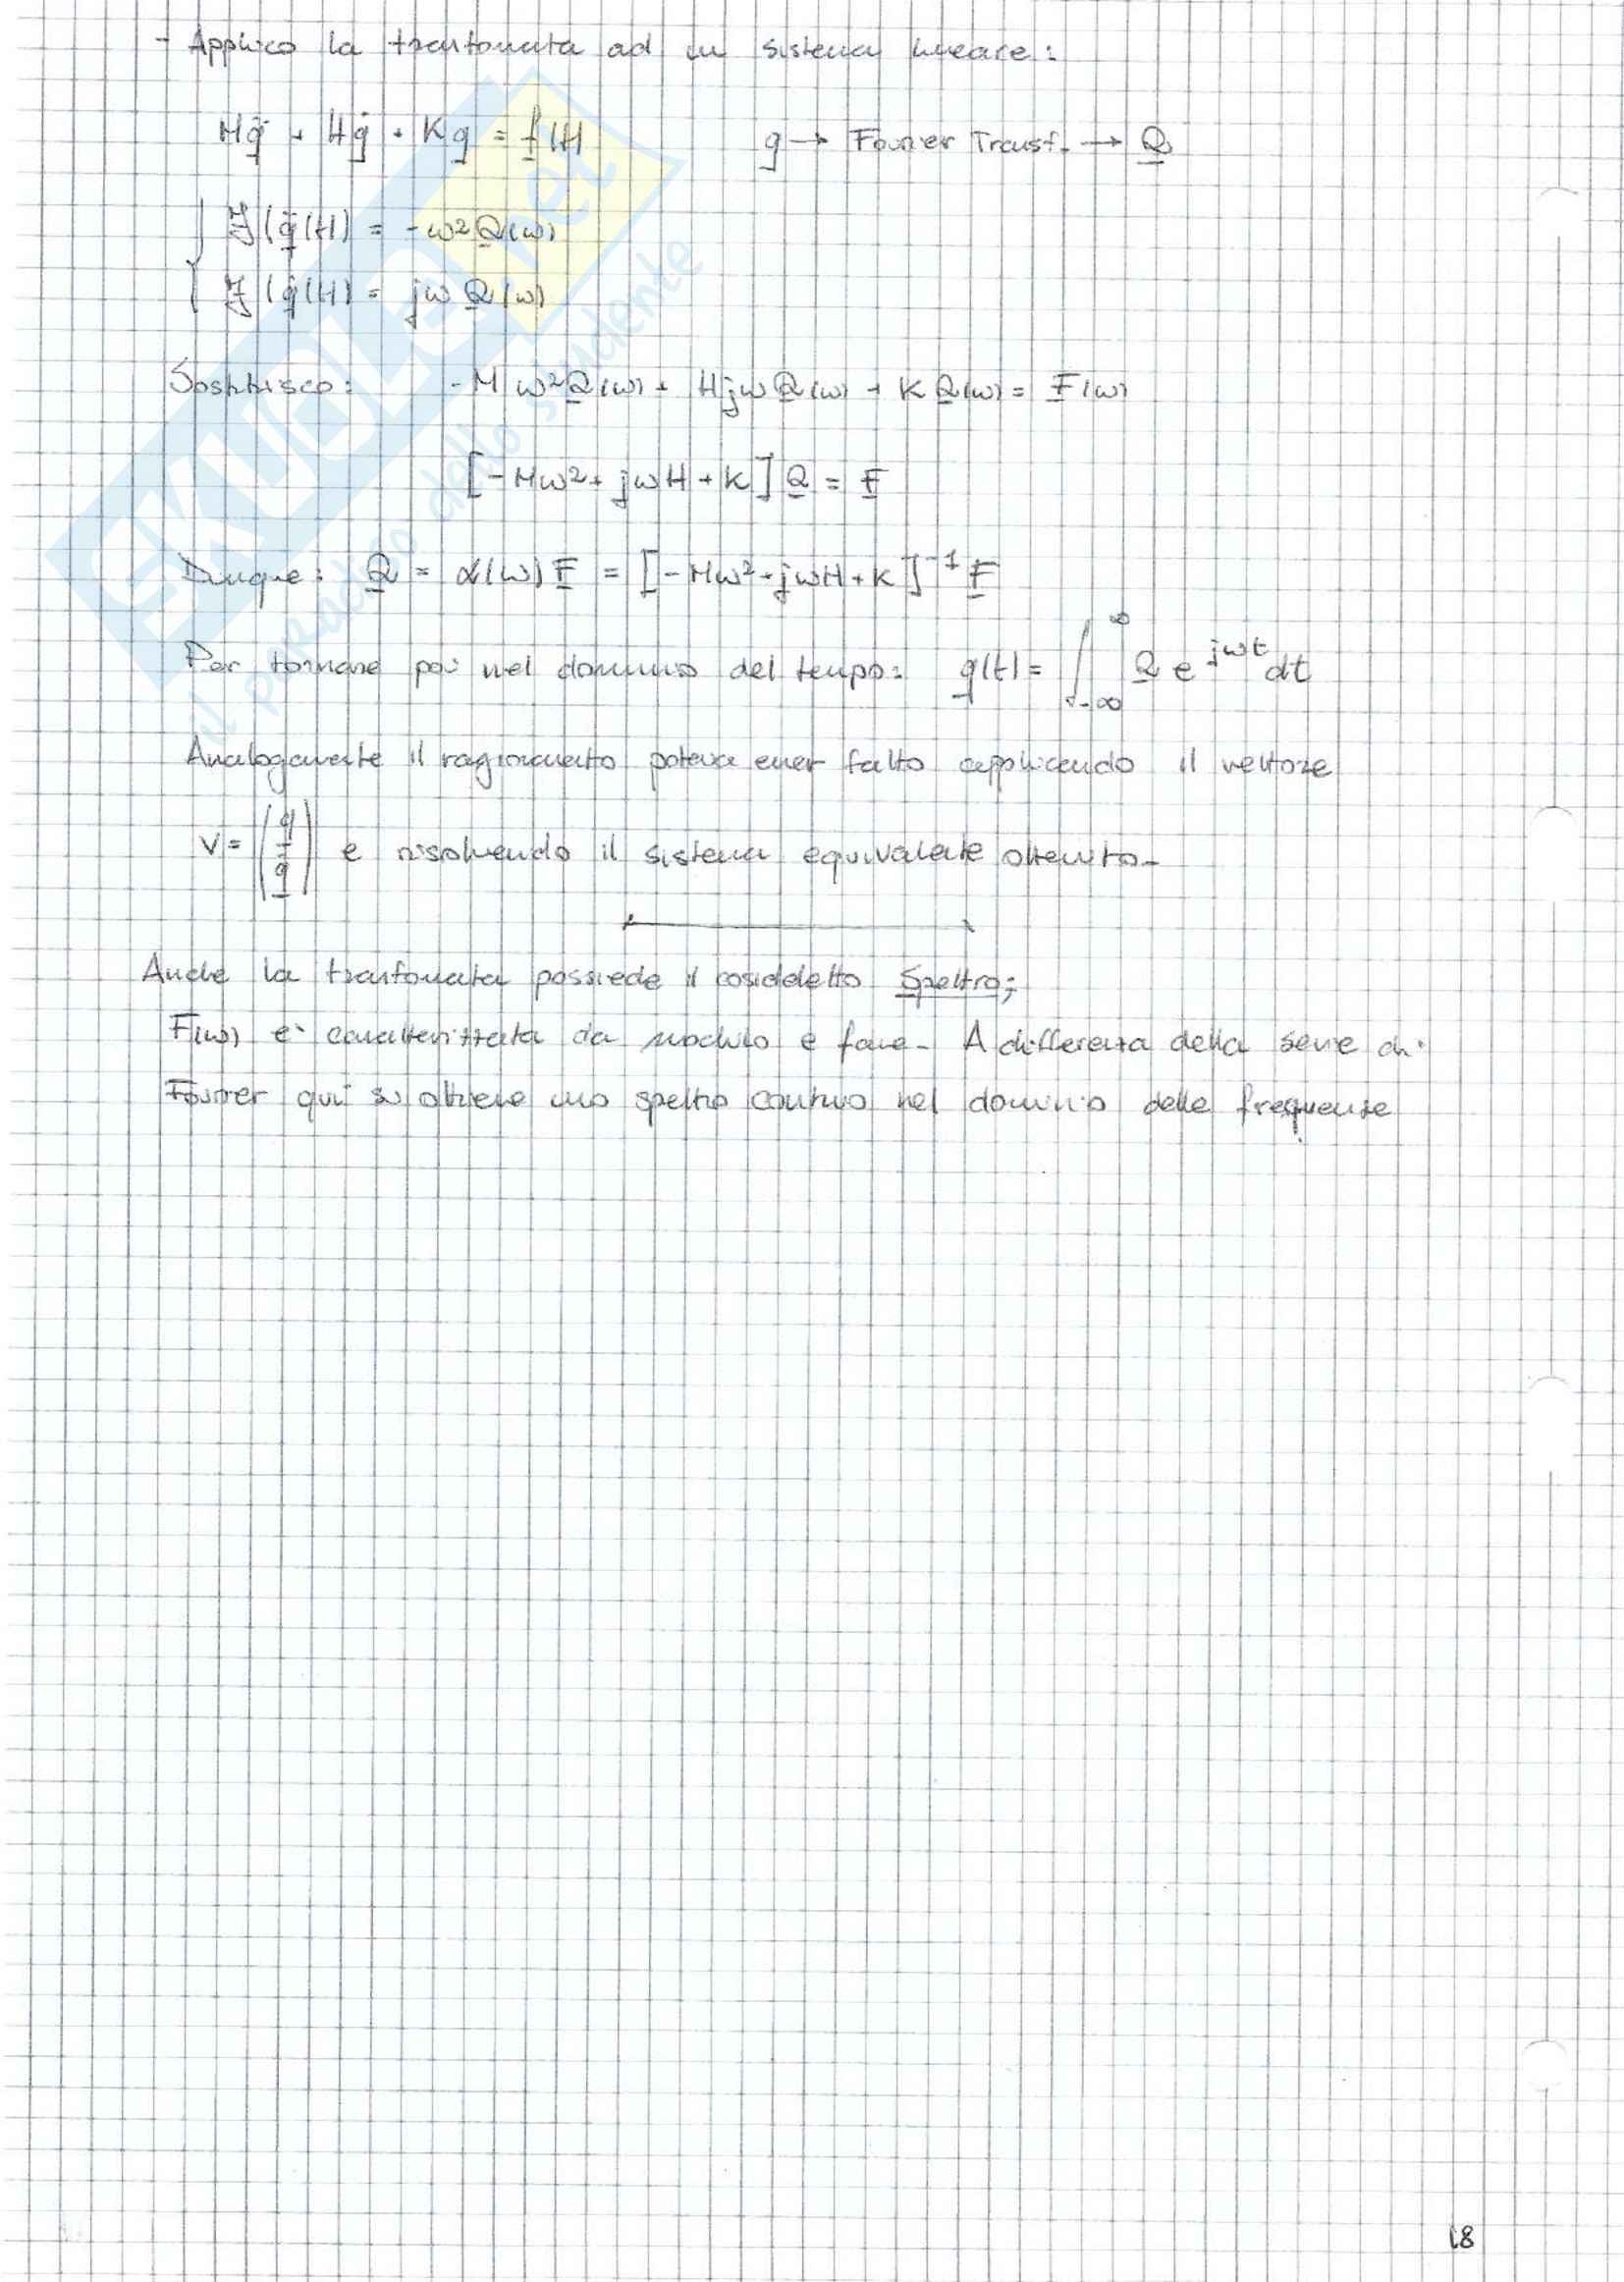 - Applico la trasformata ad un sistema lineare:
Mq̈ + Hq̇ + Kq = f(t)    q → Fourier Transf. → Q
{ F(q̈(t)) = -ω²Q(ω)
F(q̇(t)) = jωQ(ω)
Sostituisco: -Mω²Q(ω) + HjωQ(ω) + KQ(ω) = F(ω)
[-Mω² + jωH + K] Q = F
Dunque: Q = α(ω) F = [-Mω² + jωH + K]⁻¹ F
Per tornare poi nel dominio del tempo: q(t) = ∫_{-∞}^{∞} Q e^{jωt} dt
Analogamente il ragionamento poteva esser fatto applicando il vettore
V = (q̇ / q) e risolvendo il sistema equivalente ottenuto-
Anche la trasformata possiede il cosiddetto Spettro;
F(ω) è caratterizzata da modulo e fase- A differenza della serie di
Fourier qui si ottiene uno spettro continuo nel dominio delle frequenze
18
SKUOLA.net
il paradiso dello studente